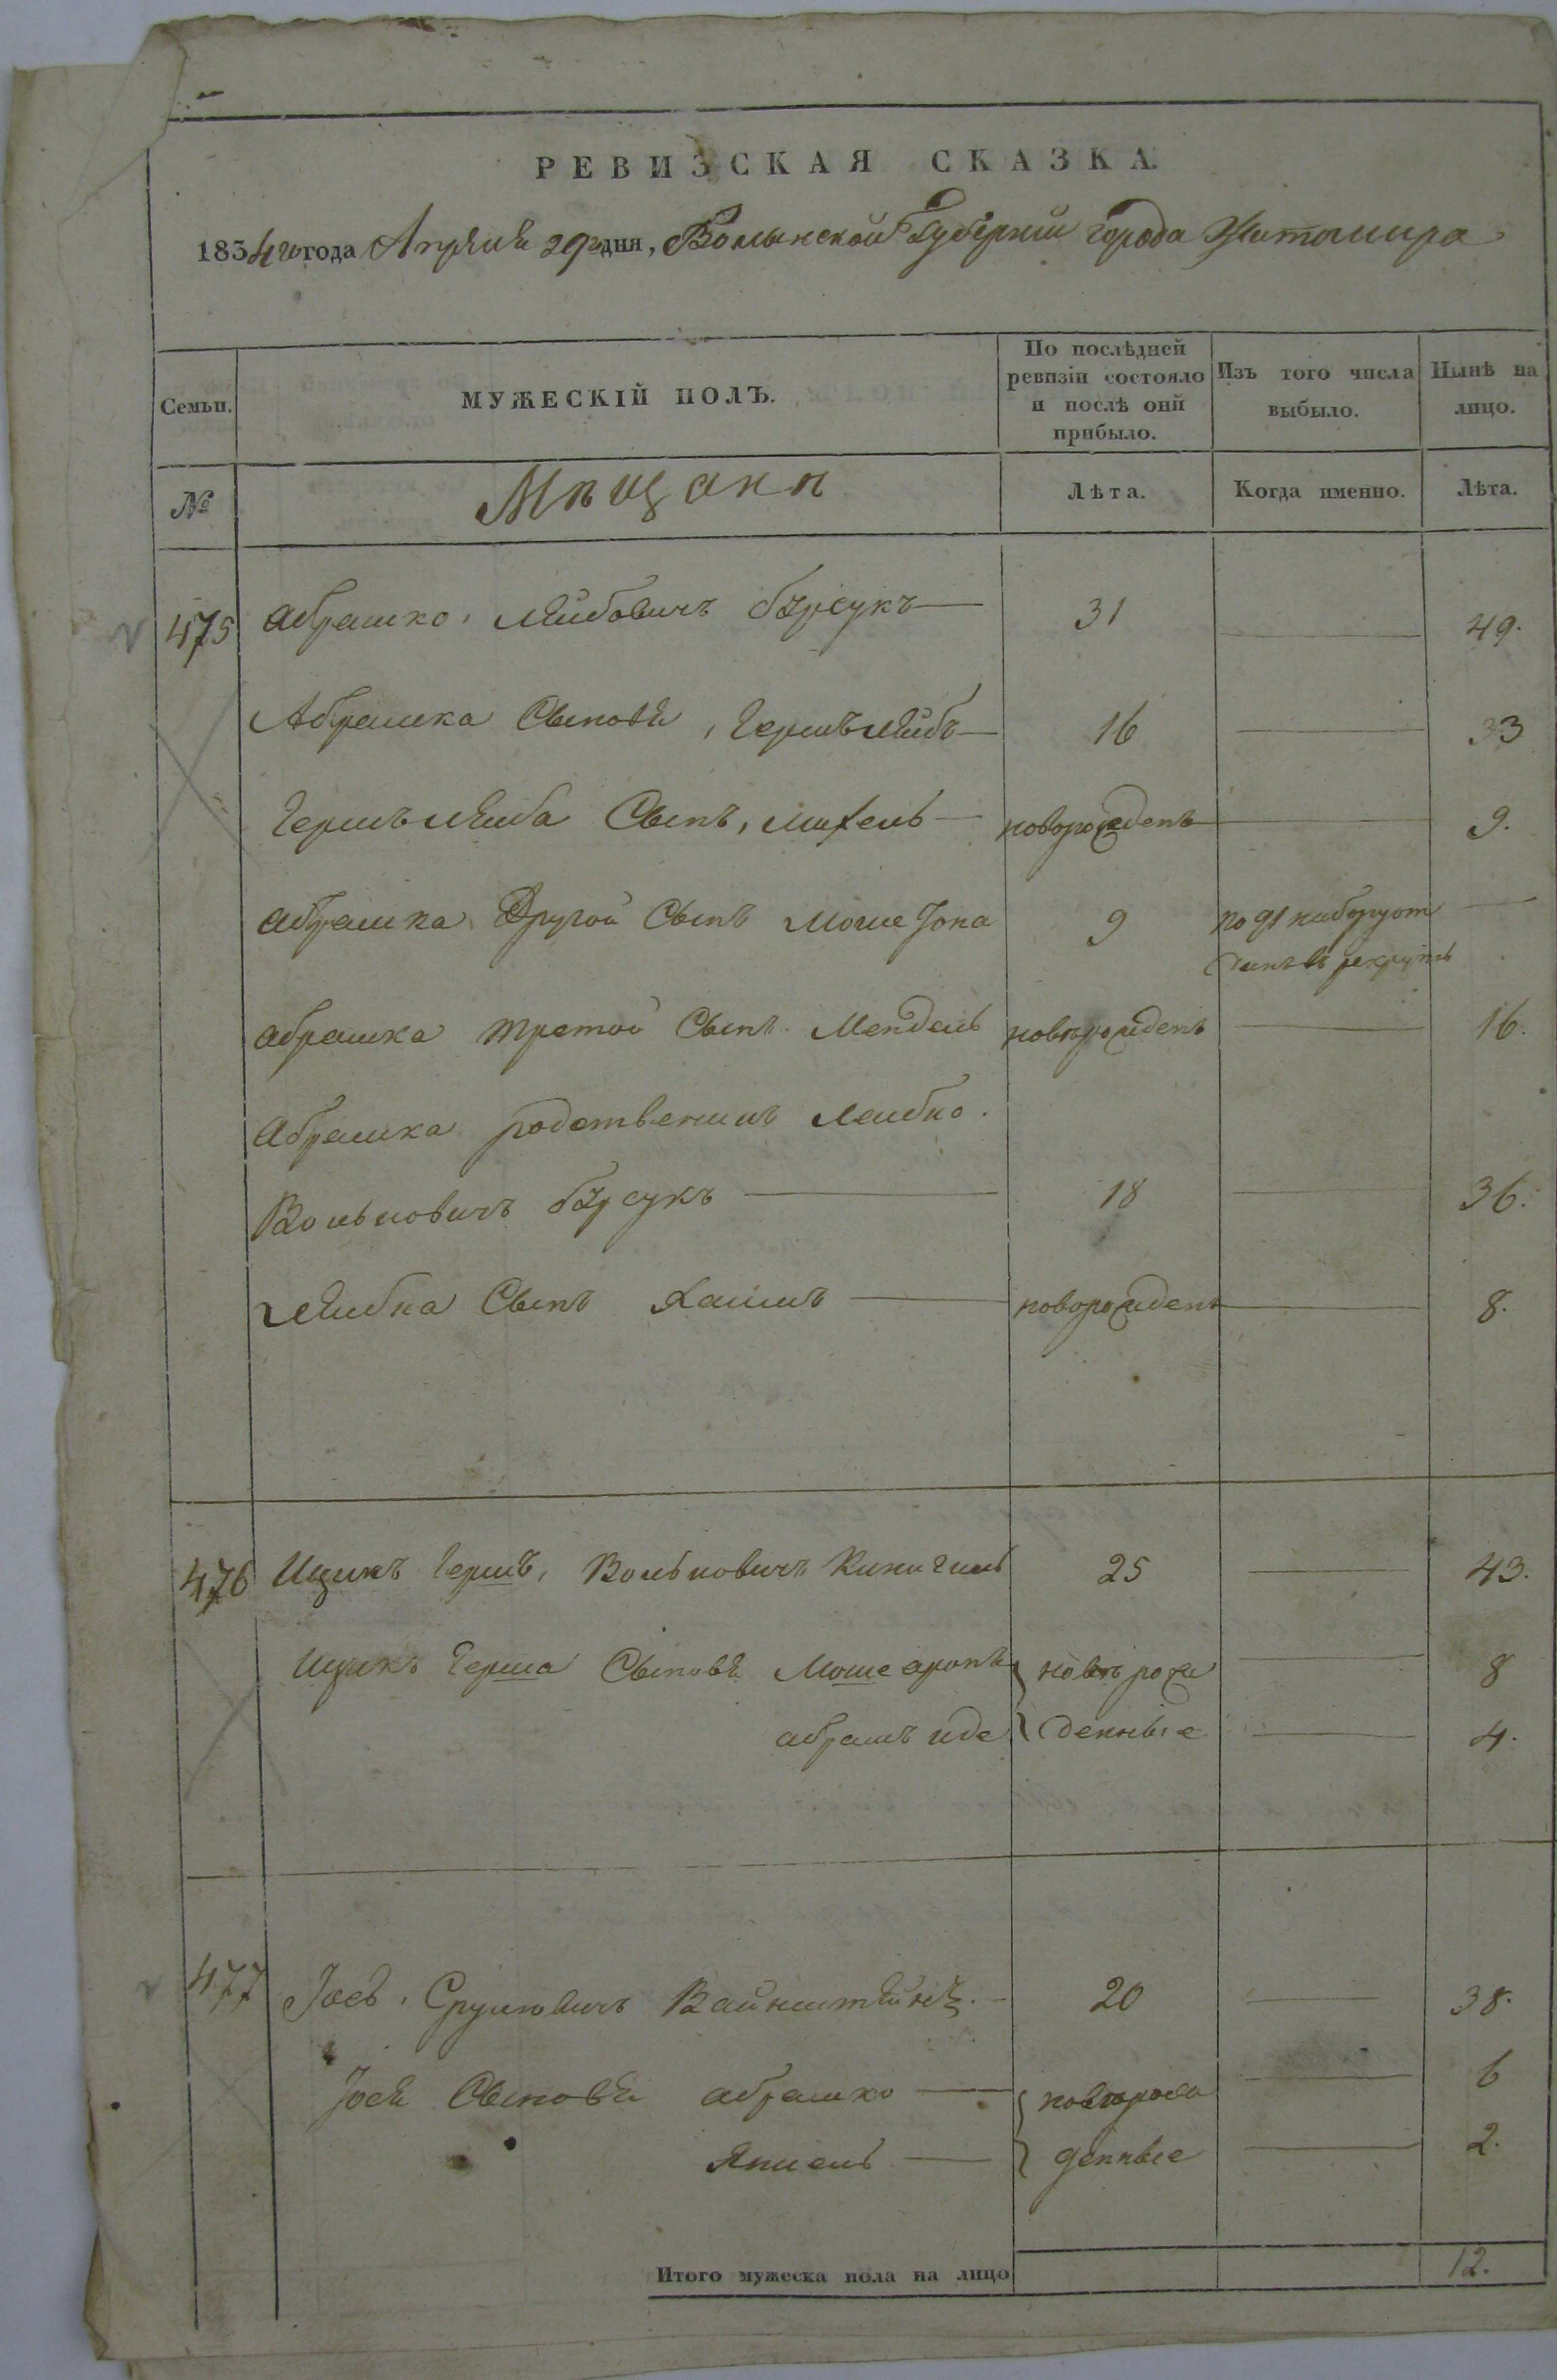 РЕВИЗСКАЯ СКАЗКА.
1834го года Апреля 29го дня, Волынской Губерніи города Житомира
Семьи.
МУЖЕСКІЙ ПОЛЪ.
По послѣдней ревизіи состояло и послѣ оній прибыло.
Изъ того числа выбыло.
Нынѣ на лицо.
№
Мѣщанѣ
Лѣта.
Когда именно.
Лѣта.
475 Абрашко, Лейбовичъ Бурсукъ 31 49.
Абрашка Сыновя, Гершълейбъ 16 33
Гершълейба Сынъ, Михель новорожденъ 9.
Абрашка Другой Сынъ Моше Іона 9
въ рекруты
Абрашка третой Сынъ Мендель новорожденъ 16.
Абрашка родственикъ Лейбко.
Вольковичъ Бурсукъ 18 36.
Лейбка Сынъ Хаимъ новорожденъ 8.
476 Ицикъ Гершъ, Вольковичъ 25 43.
Ицикъ Герша Сыновя Моше аронъ новорож 8
абрамъ иде денные 4.
477 Іось, Срулевичъ Вайнштейнъ. 20 38.
Іося Сыновя абрашко новорож 6
Янкель денные 2.
Итого мужеска пола на лицо 12.